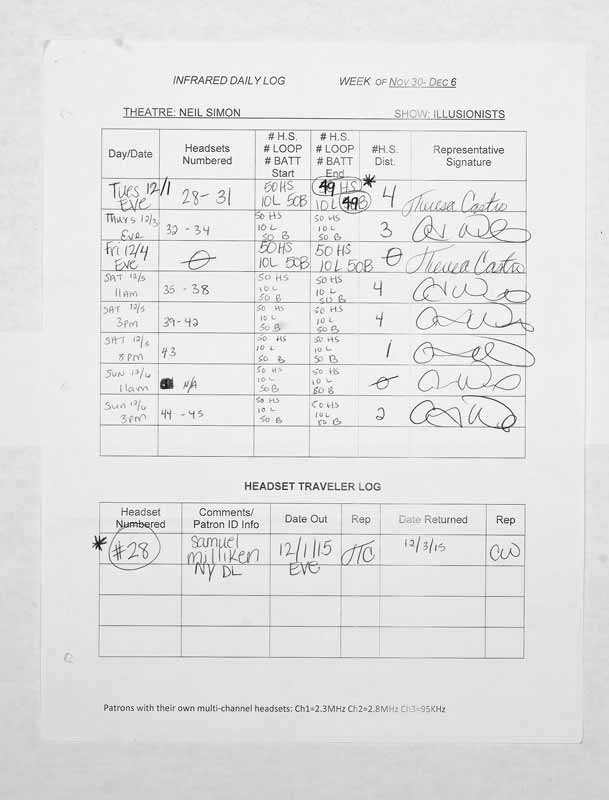 INFRARED DAILY LOG WEEK OF NOV 30- DEC 6
THEATRE: NEIL SIMON SHOW: ILLUSIONISTS
Day/Date Headsets Numbered # H.S. # LOOP # BATT Start # H.S. # LOOP # BATT End #H.S. Dist. Representative Signature
Tues 12/1 Eve 28-31 50HS 10L 50B 49 HS * 10L 49B 4 Theresa Castro
Thurs 12/3 Eve 32-34 50 HS 10 L 50 B 50 HS 10 L 50 B 3
Fri 12/4 Eve 0 50 HS 10L 50B 50 HS 10L 50B 0 Theresa Castro
SAT 12/5 11AM 35-38 50 HS 10 L 50 B 50 HS 10 L 50 B 4
SAT 12/5 3pm 39-42 50 HS 10 L 50 B 50 HS 10 L 50 B 4
SAT 12/5 8pm 43 50 HS 10 L 50 B 50 HS 10 L 50 B 1
SUN 12/6 11am N/A 50 HS 10 L 50 B 50 HS 10 L 50 B 0
Sun 12/6 3pm 44-45 50 HS 10 L 50 B 50 HS 10 L 50 B 2
HEADSET TRAVELER LOG
Headset Numbered Comments/ Patron ID Info Date Out Rep Date Returned Rep
* #28 Samuel Milliken NY DL 12/1/15 Eve TC 12/3/15 CW
Patrons with their own multi-channel headsets: Ch1=2.3MHz Ch2=2.8MHz Ch3=95KHz